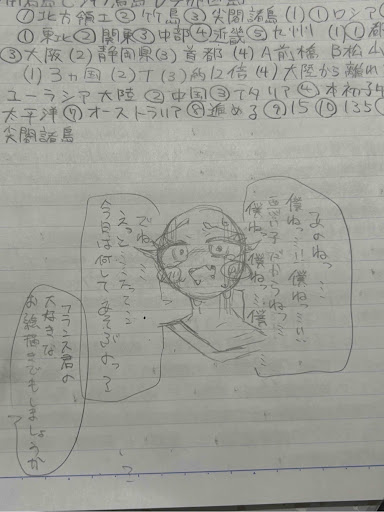 ①北方領土②竹島③尖閣諸島(1)①ロシア
①東北②関東③中部④近畿⑤九州(1)①都
③大阪(2)静岡県(3)首都(4)A前橋 B松山
(1)3ヵ国(2)(3)約12倍(4)大陸から離れ
ユーラシア大陸②中国③イタリア④本初子午
太平洋⑦オーストラリア⑧進める⑨15⑩135
尖閣諸島
あのねっ…
僕ねっ…!!僕ねっ…い、
悪い子だからねっ…
僕ねっ…僕ねっ…僕…
でね……
えっと……だって……
今日は何してあそぶよっ?
フランス君の
大好きな
お絵描きでもしましょうか?